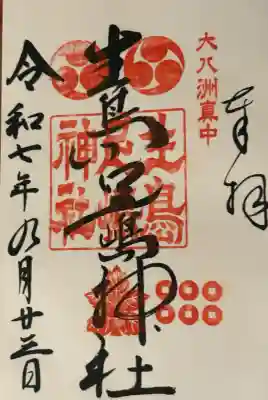 奉拝
大八洲真中
生島足島神社
生島足島神社
令和七年九月廿三日